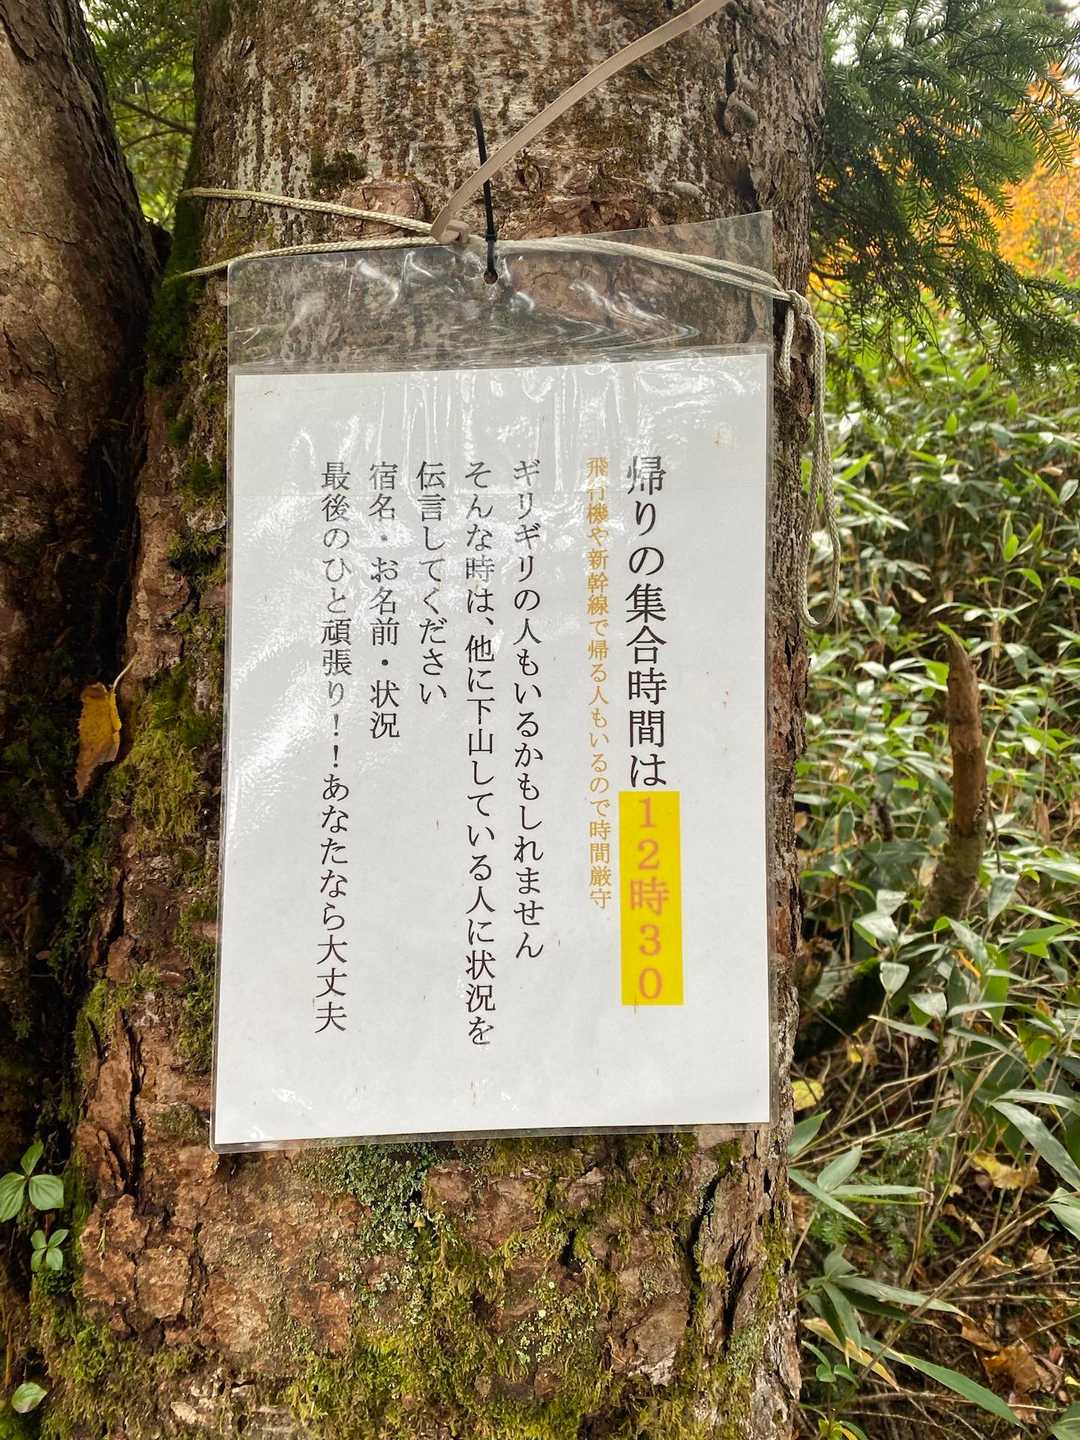 帰りの集合時間は12時30
飛行機や新幹線で帰る人もいるので時間厳守
ギリギリの人もいるかもしれません
そんな時は、他に下山している人に状況を
伝言してください
宿名・お名前・状況
最後のひと頑張り！！あなたなら大丈夫